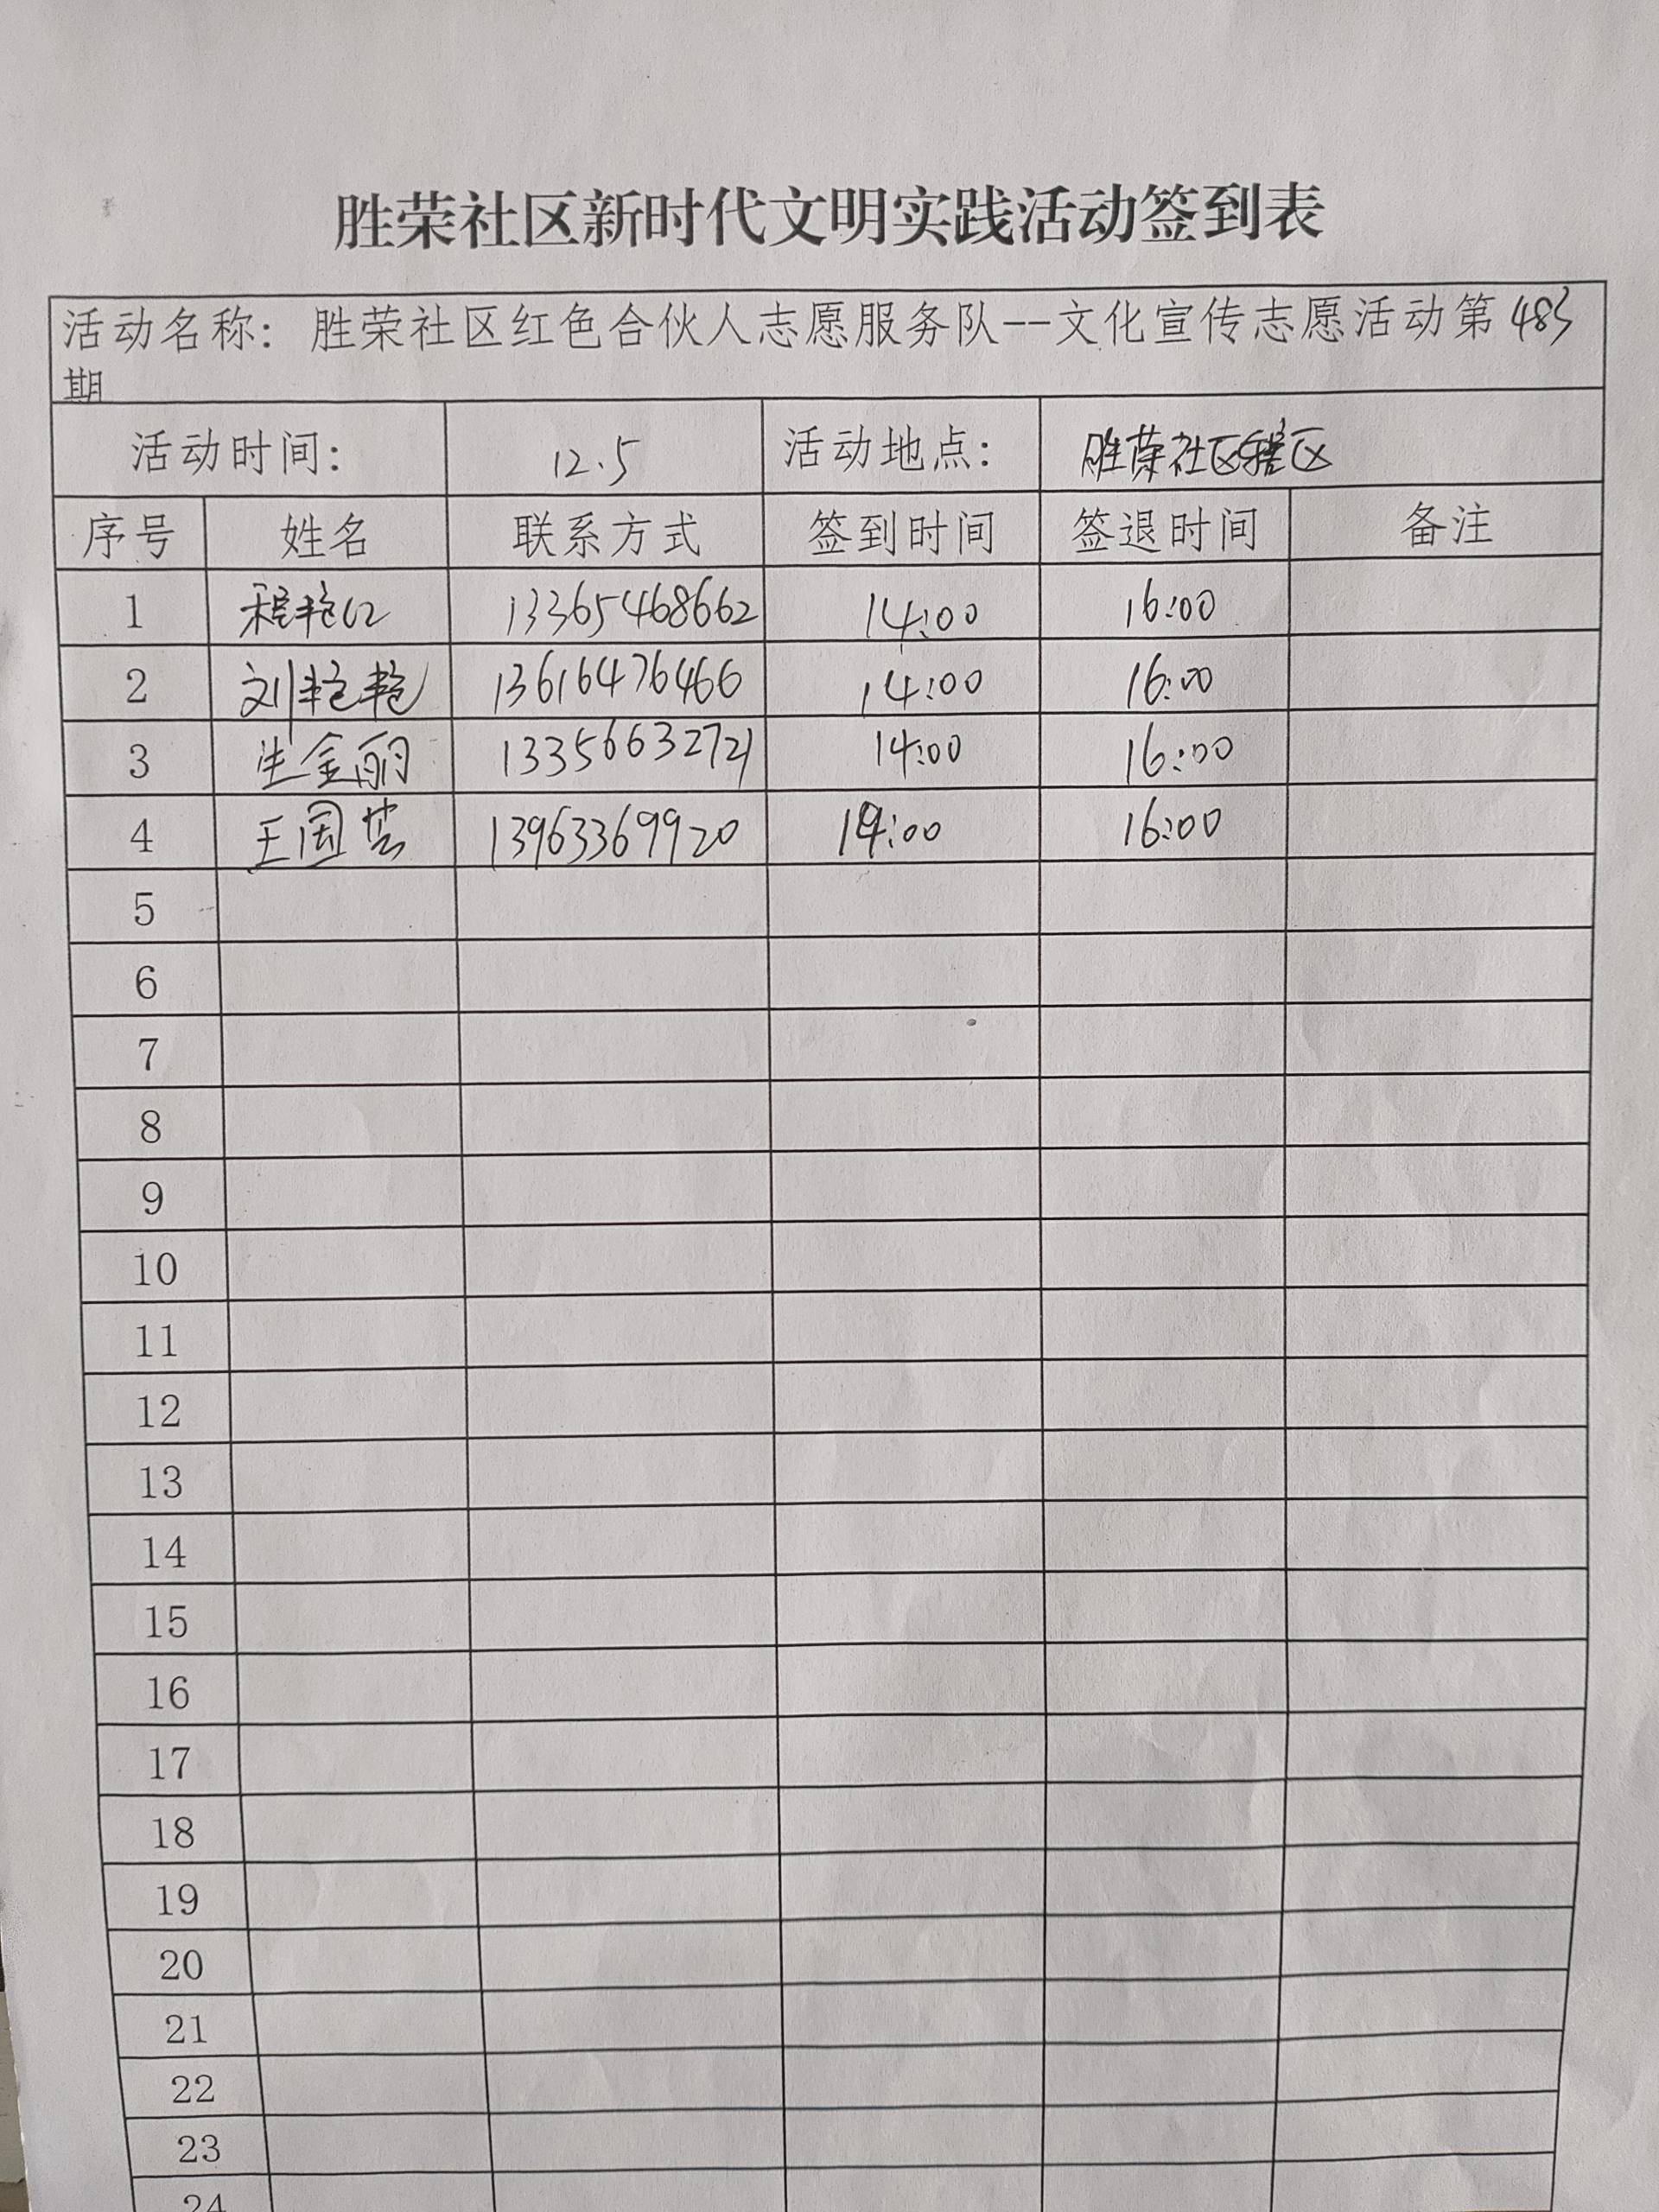 胜荣社区新时代文明实践活动签到表
活动名称：胜荣社区红色合伙人志愿服务队--文化宣传志愿活动第483
期
活动时间： 12.5 活动地点： 胜荣社区辖区
序号 姓名 联系方式 签到时间 签退时间 备注
1 程艳红 13365468662 14:00 16:00
2 刘艳艳 13616476466 14:00 16:00
3 生金丽 13356632721 14:00 16:00
4 王国芸 13963369920 14:00 16:00
5
6
7
8
9
10
11
12
13
14
15
16
17
18
19
20
21
22
23
24